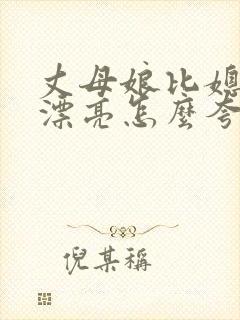 丈母娘比媳
漂亮怎麼夸
倪某稱